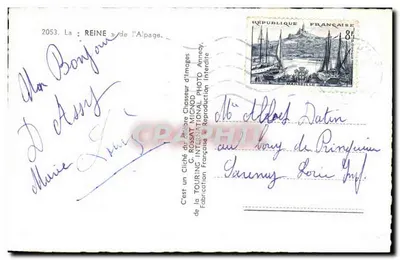 2053. La : REINE « de l'Alpage. -
Mon Bonjour
D'Assy
Marie Louise
C'est un Cliché du Peintre Chasseur d'Images
C. ROSSAT MIGNOD
de la TOURING INTERNATIONAL PHOTO Annecy.
Fabrication Française - Reproduction Interdite
REPUBLIQUE FRANÇAISE
8F
CPAPHIL
Albert Datin
au bourg de Prinquiau
Savenay Loire Inf.